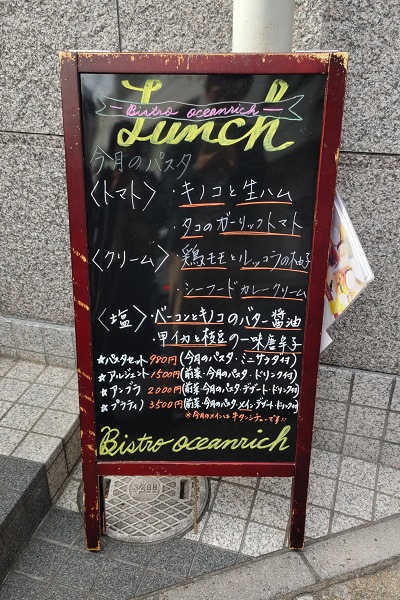 Lunch
Bistro oceanrich
今月のパスタ
〈トマト〉・キノコと生ハム
・タコのガーリックトマト
〈クリーム〉・鶏モモとルッコラの柚子
・シーフードカレークリーム
〈塩〉・ベーコンとキノコのバター醤油
・甲イカと枝豆の一味唐辛子
★パスタセット 980円(今月のパスタ・ミニサラダ付)
★アルジェント 1500円(前菜・今月のパスタ・ドリンク付)
★アンブラ 2000円(前菜・今月のパスタ・デザート・ドリンク付)
★プラティノ 3500円(前菜・今月のパスタ・メイン・デザート・ドリンク付)
※今月のメインは牛タンシチューです!!
Bistro oceanrich